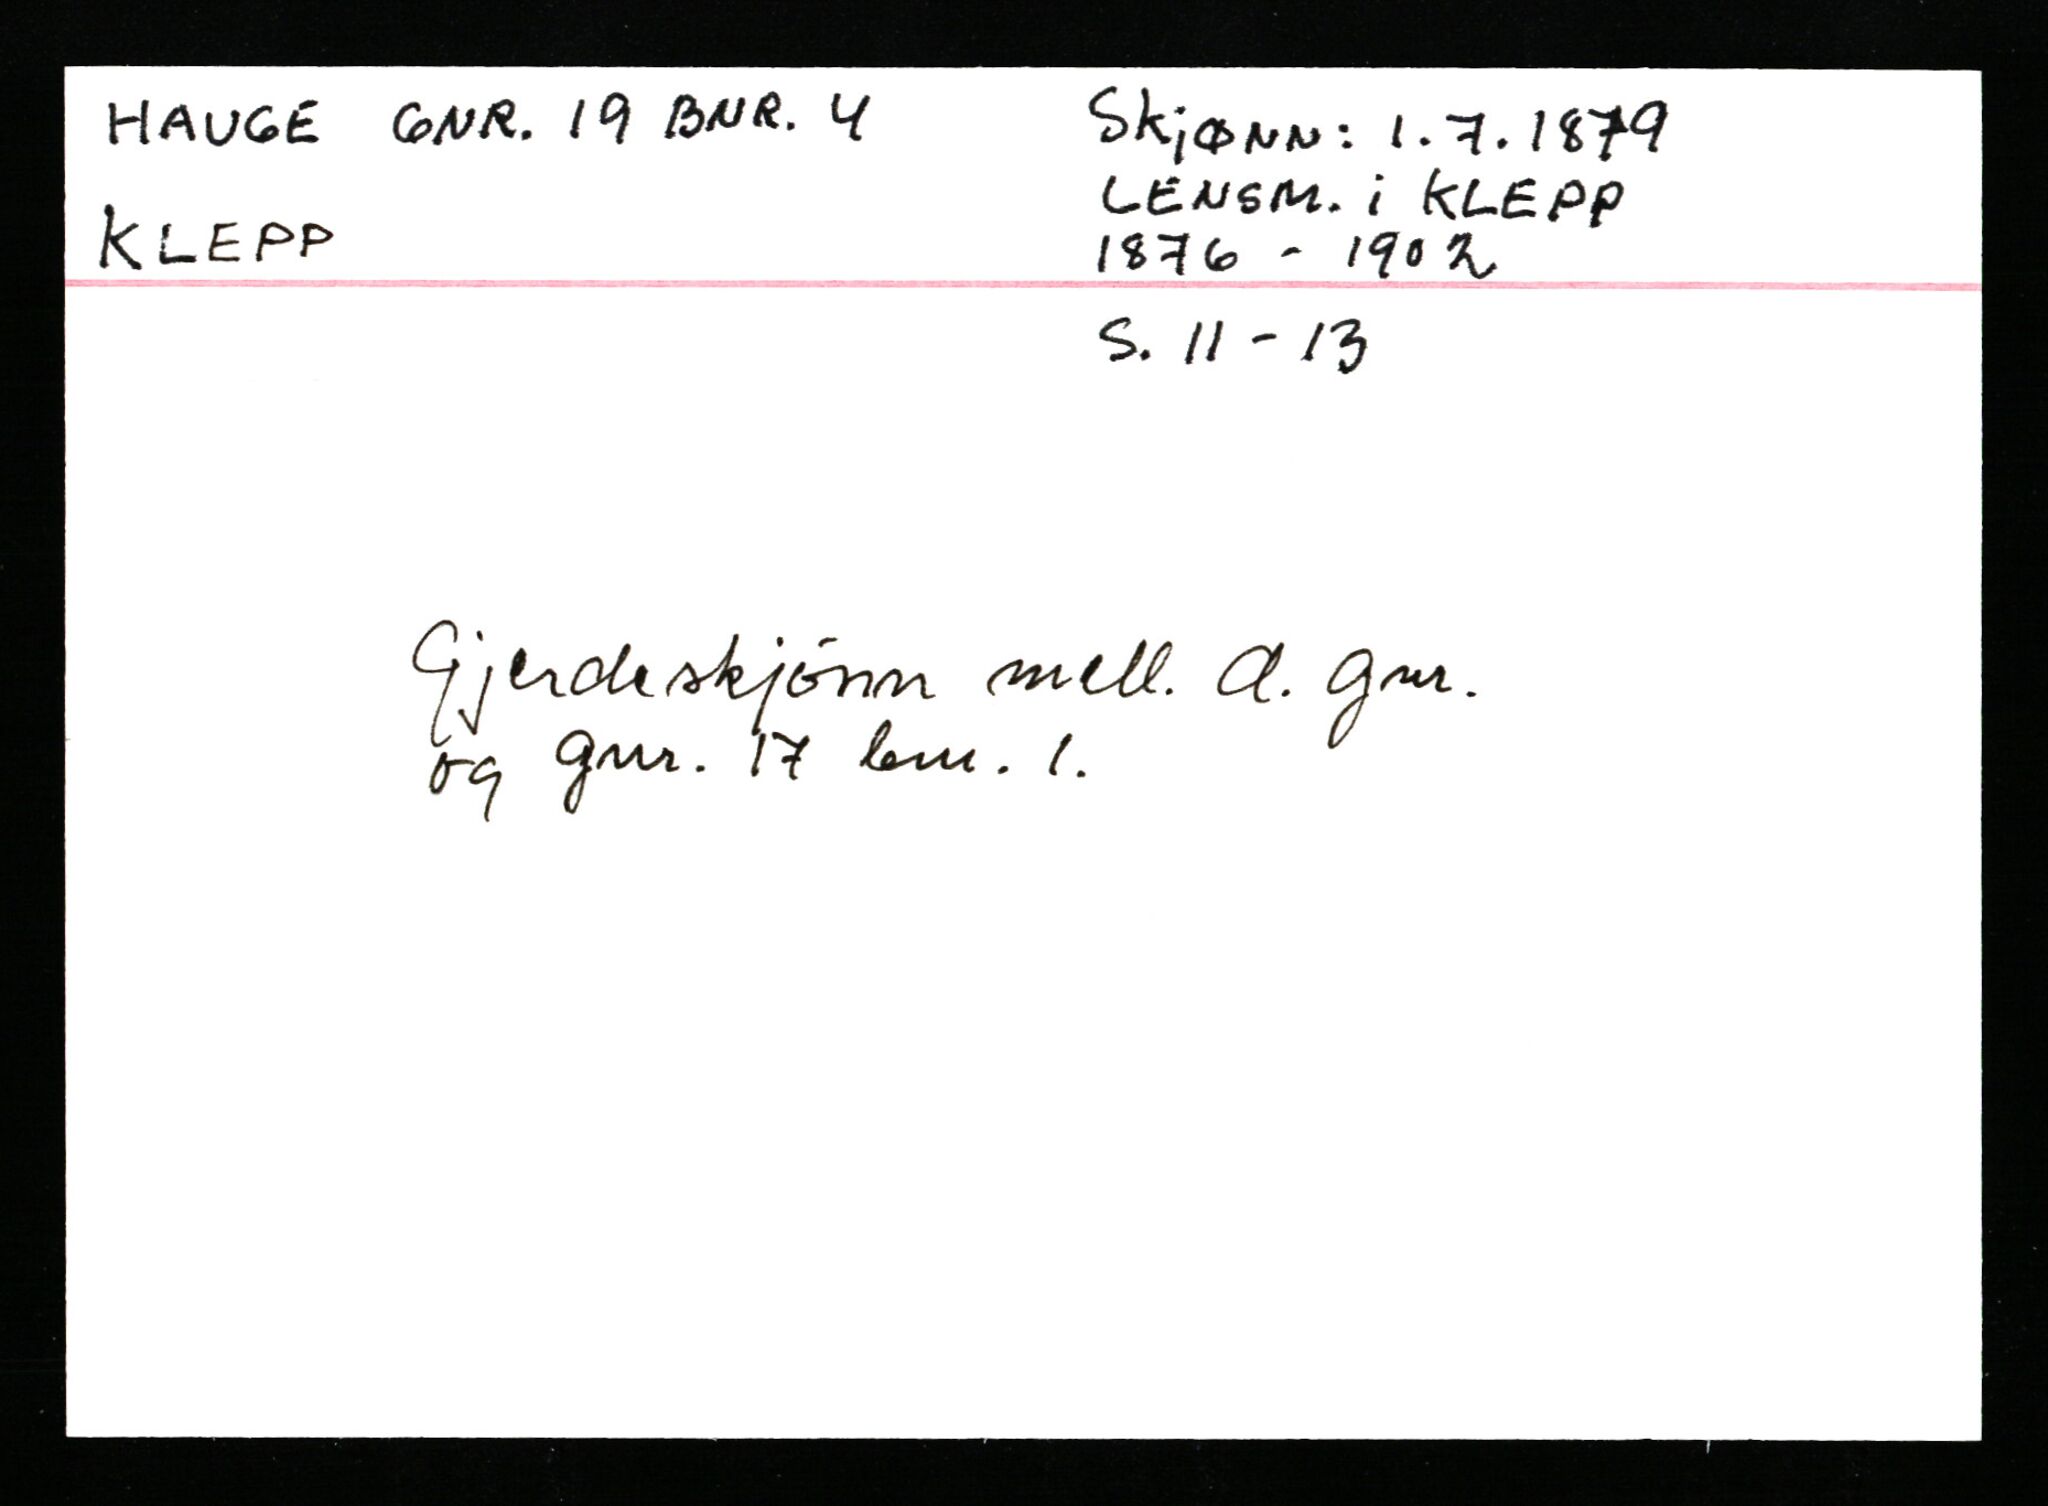 HAUGE GNR. 19 BNR. 4
KLEPP
Skjønn: 1.7.1879
LENSM. i KLEPP
1876 - 1902
S. 11 - 13
Gjerdeskjönn mell. d. gnr.
og gnr. 17 bnr. 1.